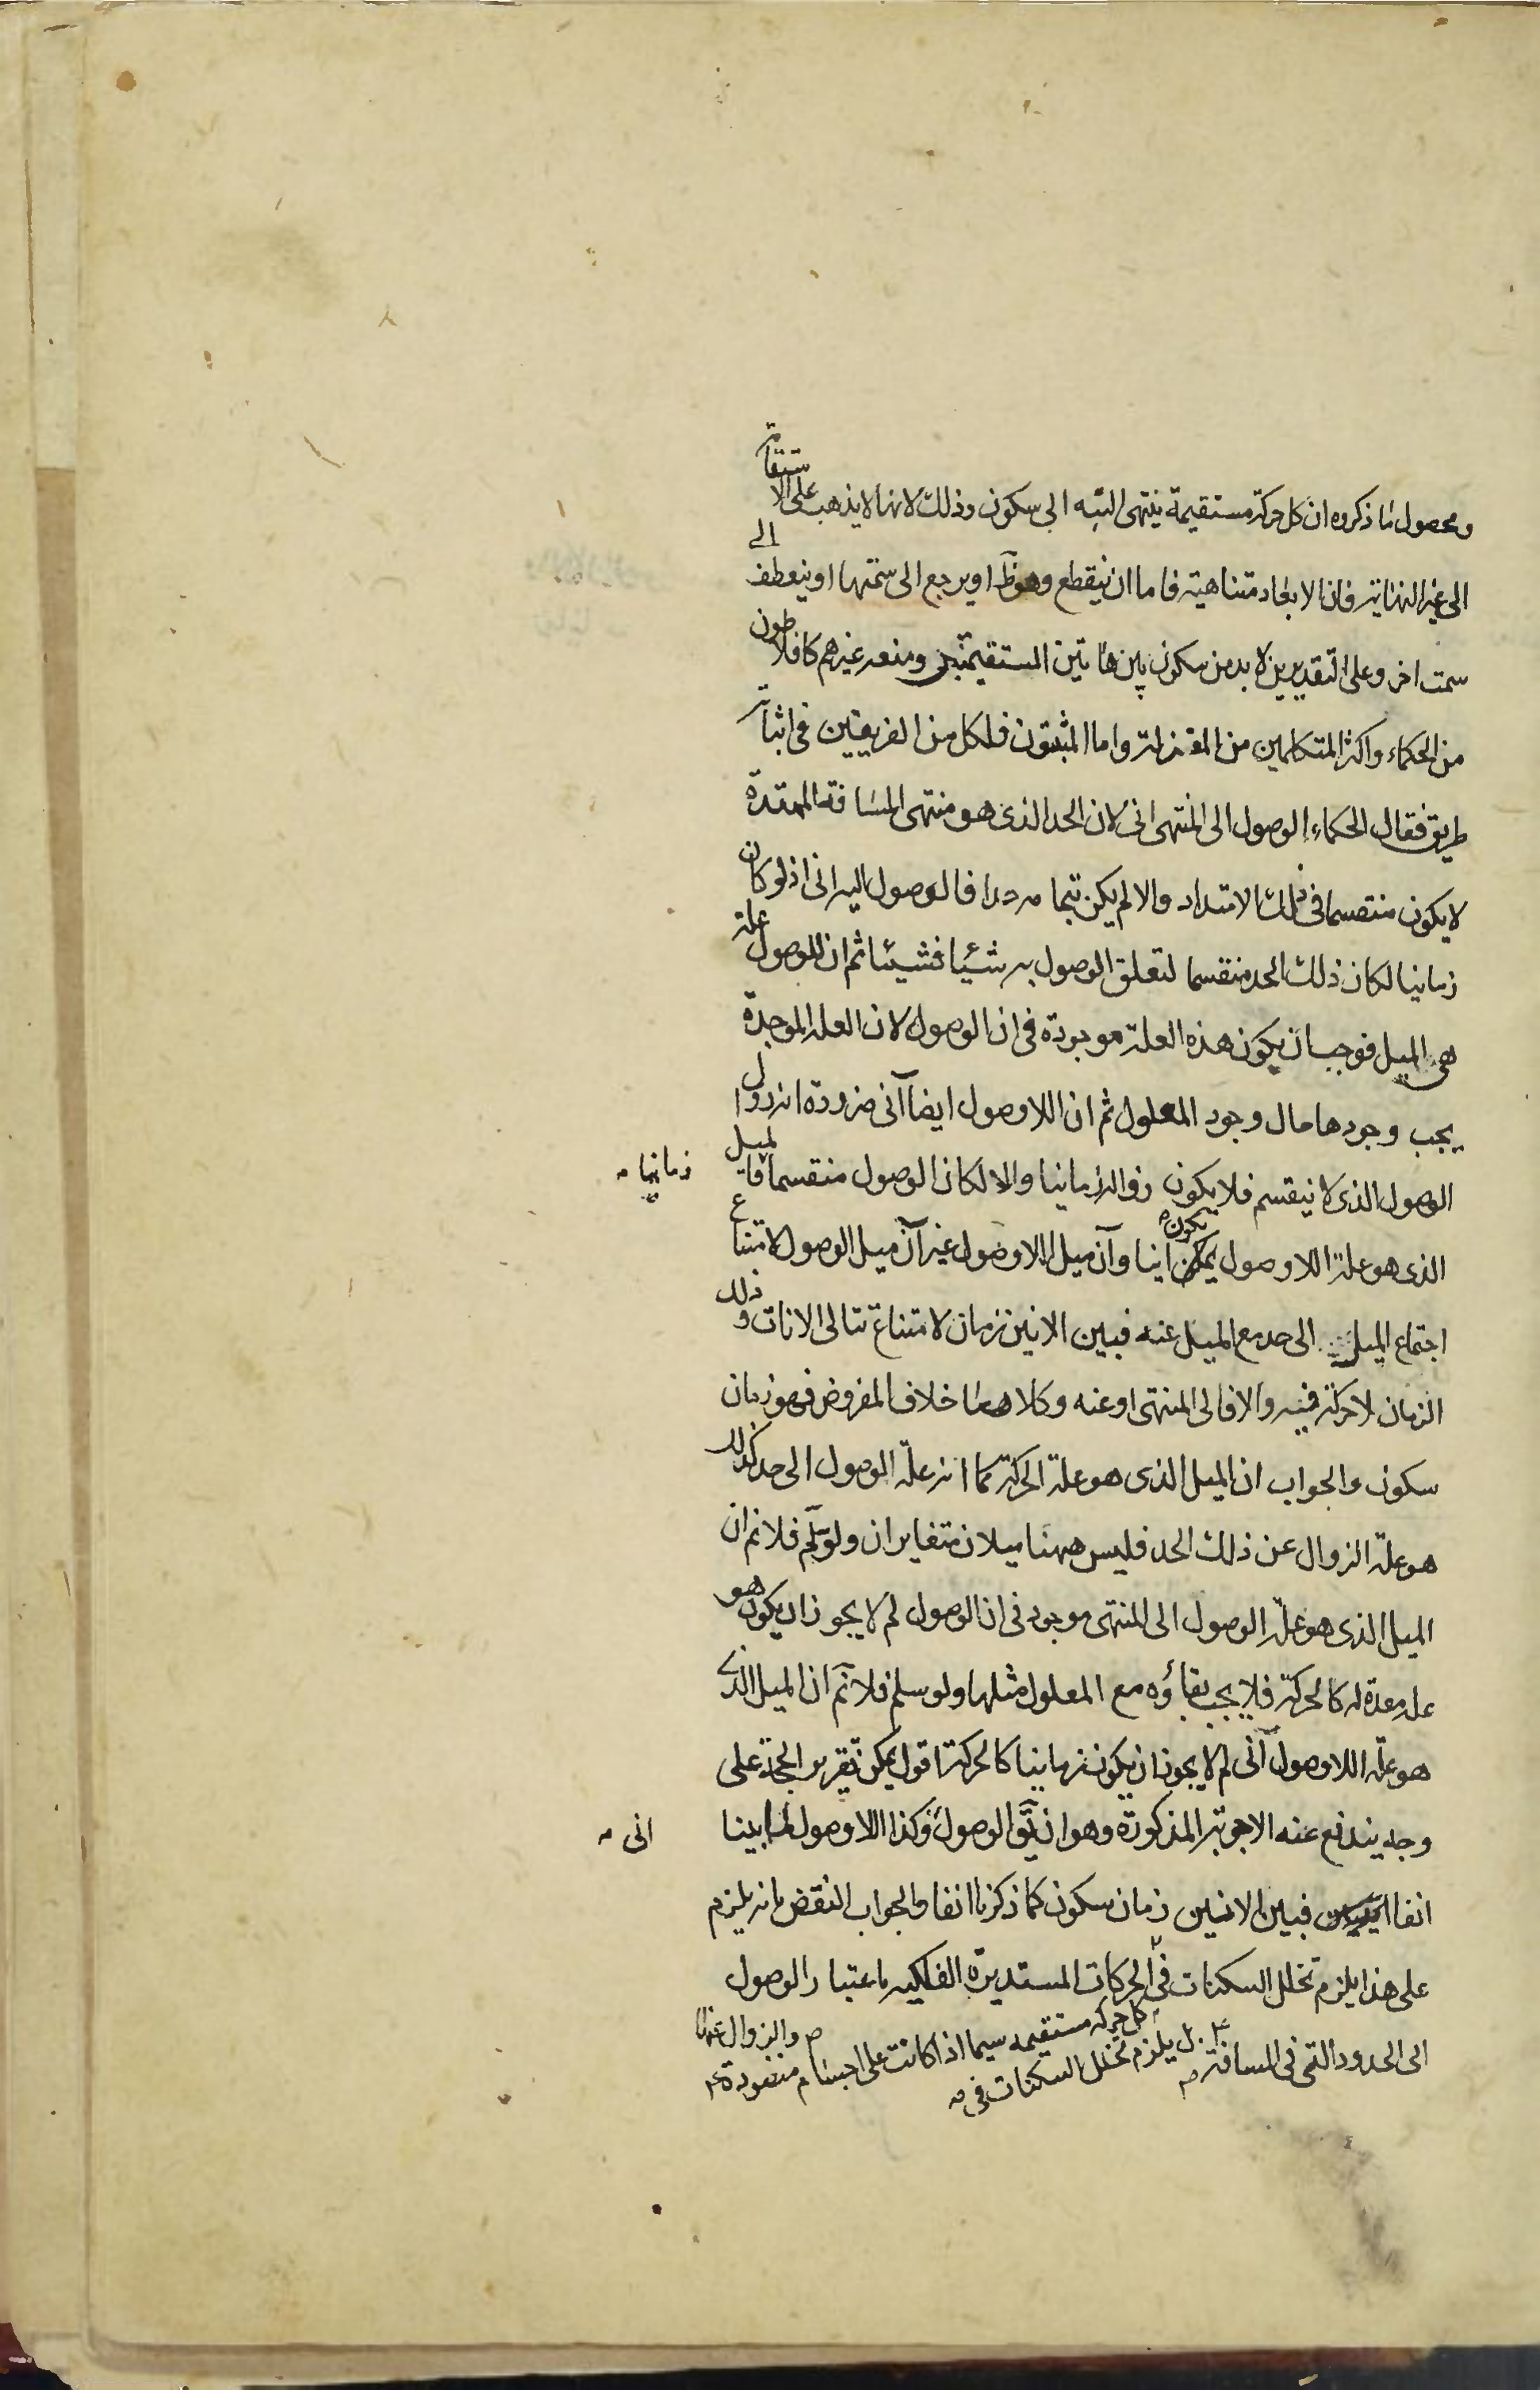 ومحصول ما ذكروه ان كل حركة مستقيمة ينتهى البتة الى سكون وذلك لانها لا يذهب على الاستقامة
الى غير النهاية فان الابعاد متناهية فاما ان ينقطع وهو ظ او يرجع الى سمتها او ينعطف الى
سمت اخر وعلى التقديرين لا بد من سكون بين هاتين المستقيمتين ومنعه غيرهم كافلاطون
من الحكماء واكثر المتكلمين من المعتزلة واما المثبتون فلكل من الفريقين فى اثباته
طريق فقال الحكماء الوصول الى المنتهى انى لان الحد الذى هو منتهى المسافة الممتدة
لا يكون منقسما فى ذلك الامتداد والا لم يكن بتمامه حدا فالوصول اليه انى اذ لو كان
زمانيا لكان ذلك الحد منقسما لتعلق الوصول به شيئا فشيئا ثم ان للوصول علة
هى الميل فوجب ان يكون هذه العلة موجودة فى ان الوصول لان العلة الموجدة
يجب وجودها حال وجود المعلول ثم ان اللاوصول ايضا آنى ضرورة انه زوال
الوصول الذى لا ينقسم فلا يكون زواله زمانيا والا لكان الوصول منقسما فالميل
زمانيا
الذى هو علة اللاوصول يكون انيا وآن ميل اللاوصول غير آن ميل الوصول لامتناع
اجتماع الميل الى حد مع الميل عنه فبين الانين زمان لامتناع تتالى الانات وذلك
الزمان لا حركة فيه والا فالى المنتهى او عنه وكلاهما خلاف المفروض فهو زمان
سكون والجواب ان الميل الذى هو علة الحركة كما انه علة الوصول الى حد كذلك
هو علة الزوال عن ذلك الحد فليس ههنا ميلان متغايران ولو سلم فلا نم ان
الميل الذى هو علة الوصول الى المنتهى موجود فى ان الوصول لم لا يجوز ان يكون هو
علة معدة له كالحركة فلا يجب بقاؤه مع المعلول مثلها ولو سلم فلا نم ان الميل الذى
هو علة اللاوصول آنى لم لا يجوز ان يكون زمانيا كالحركة اقول يمكن تقرير الحجة على
وجه يندفع عنه الاجوبة المذكورة وهو ان يق الوصول وكذا اللاوصول لما بينا
انى
انفا فبين الانين زمان سكون كما ذكرنا انفا والجواب النقض بانه يلزم
على هذا يلزم تخلل السكنات فى الحركات المستديرة الفلكيه باعتبار الوصول
الى الحدود التى فى المسافة
والزوال عنها
بل يلزم تخلل السكنات فى
كل حركه مستقيمه سيما اذا كانت على اجسام منضودة